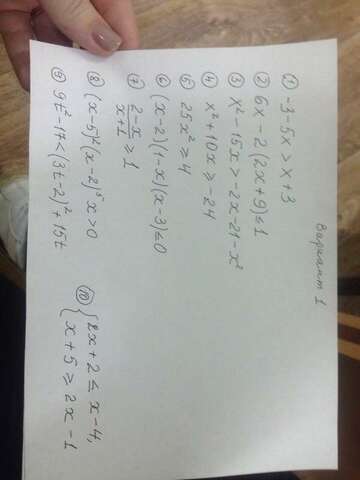 Вариант 1
① -3-5x > x+3
② 6x - 2(2x+9) ≤ 1
③ x² - 15x > -2x - 21 - x²
④ x² + 10x ≥ -24
⑤ 25x² ≥ 4
⑥ (x-2)(1-x)(x-3) ≤ 0
⑦ (2-x)/(x+1) ≥ 1
⑧ (x-5)²(x-2)⁵x > 0
⑨ 9t² - 17 < (3t-2)² + 15t
⑩ { 2x+2 ≤ x-4,
{ x+5 ≥ 2x-1